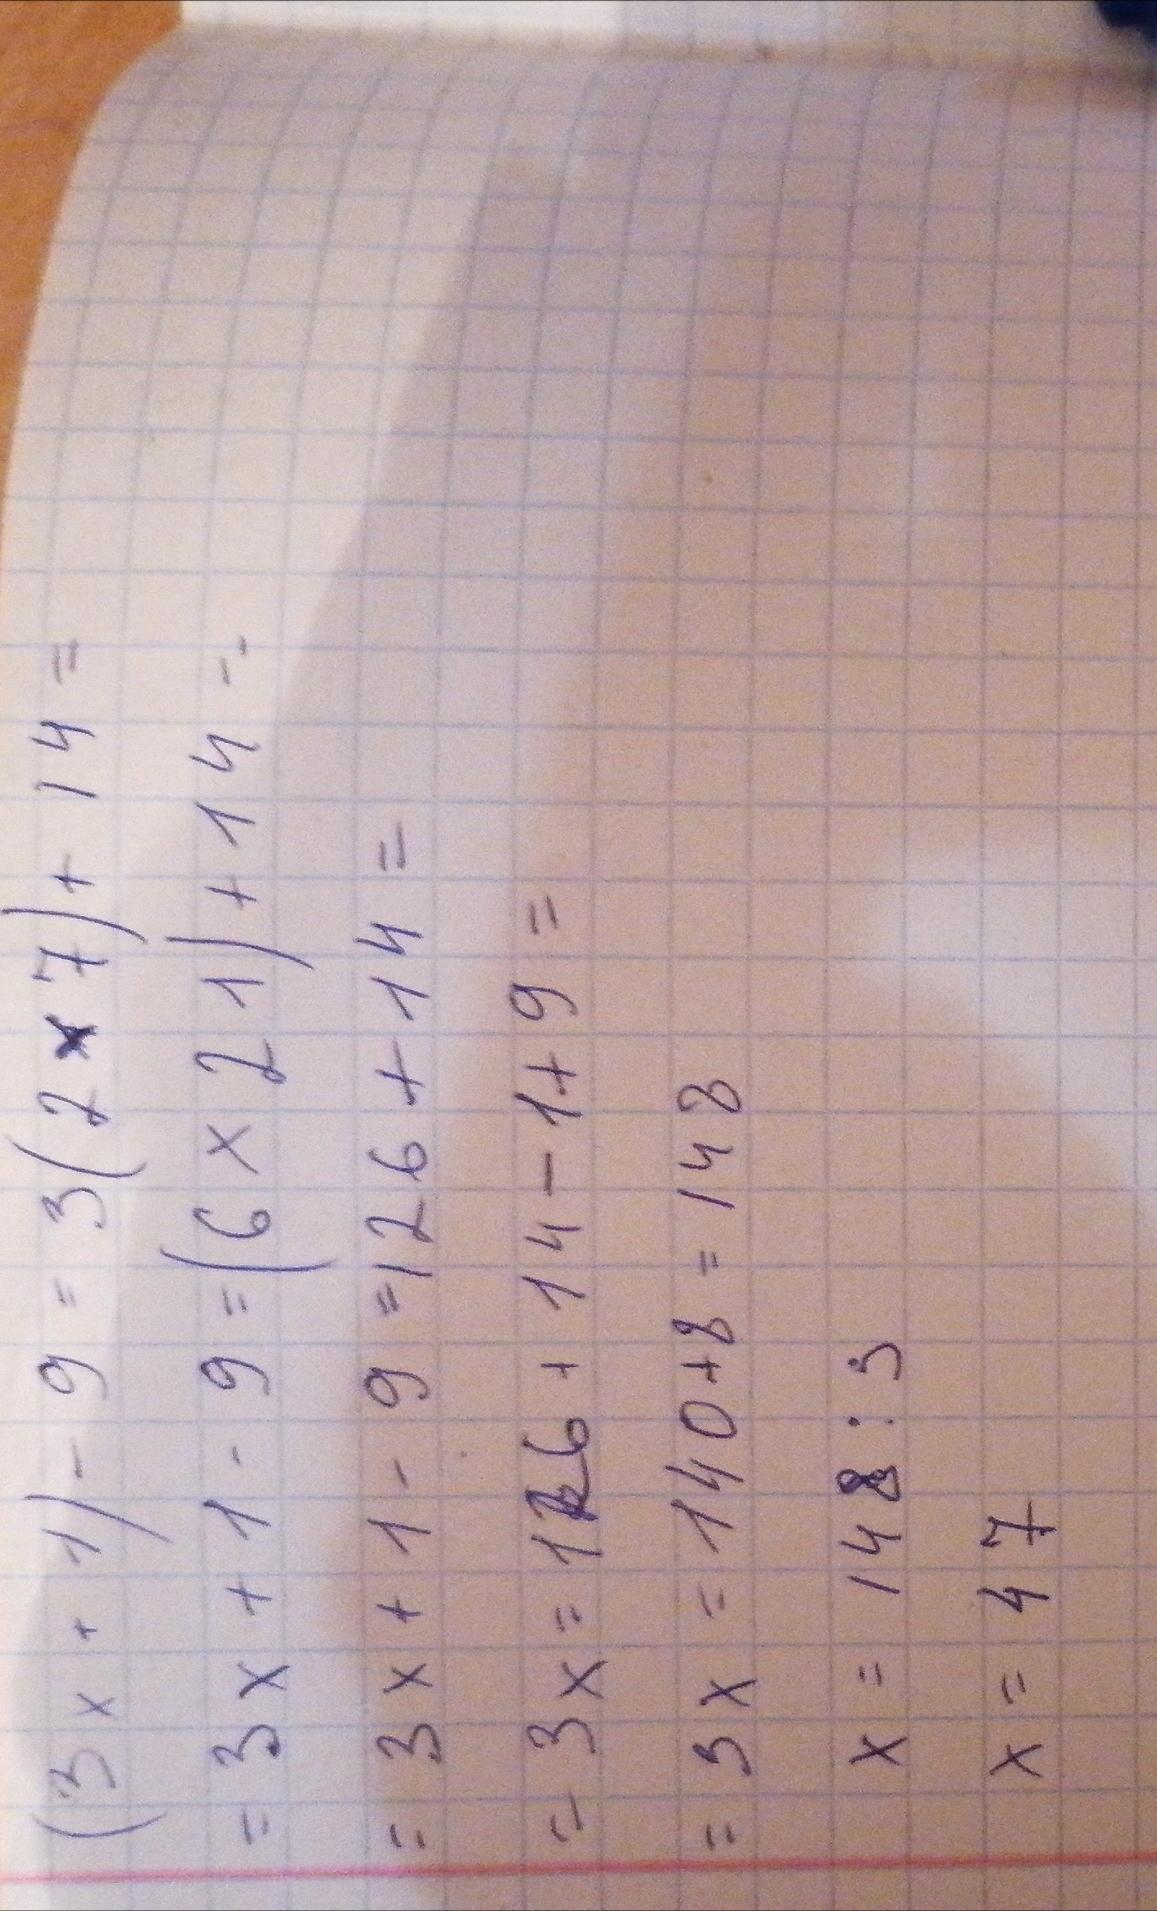 (3x + 1) - 9 = 3(2x7) + 14 =
= 3x + 1 - 9 = (6x21) + 14 =
= 3x + 1 - 9 = 126 + 14 =
= 3x = 126 + 14 - 1 + 9 =
= 3x = 140 + 8 = 148
x = 148 : 3
x = 47